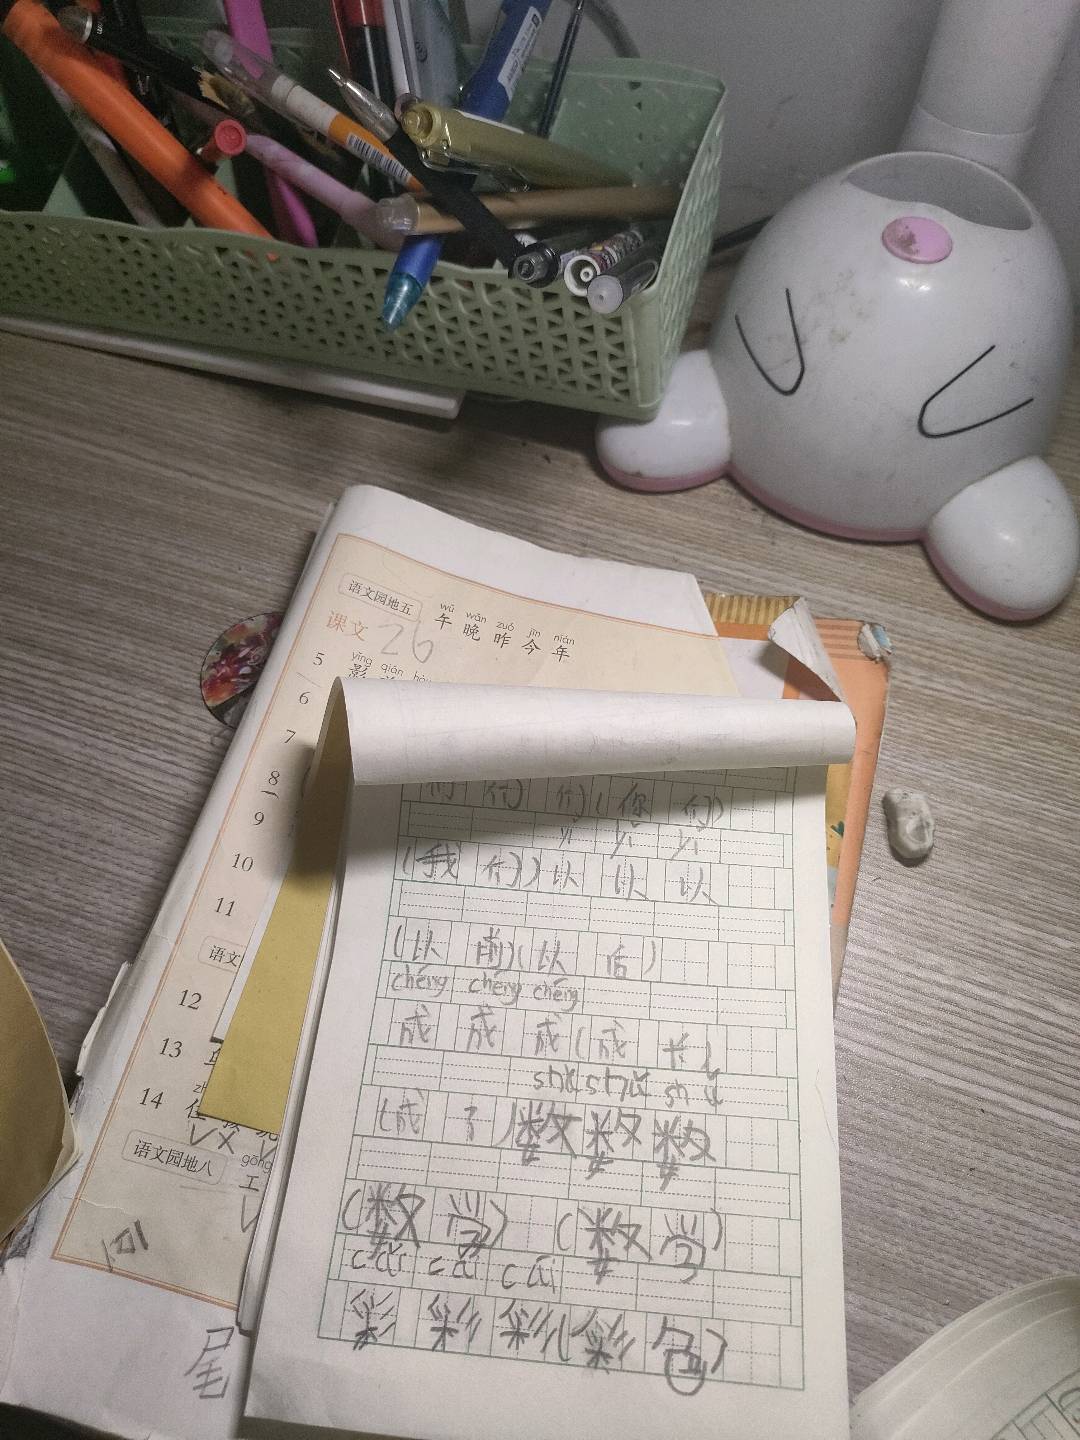 语文园地五
wǔ wǎn zuó jīn nián
午 晚 昨 今 年
课文 26
yǐng qián
5 影
6
7
8
9
10
11
语文
12
13
14 住 孩
语文园地八
gōng
工
尾
们 们 们(你 们)
yǐ yǐ yǐ
(我 们)以 以 以
(以 前)(以 后)
chéng chéng chéng
成 成 成(成 长)
shǔ shǔ shǔ
(成 了)数 数 数
(数 学) (数 学)
cǎi cǎi cǎi
彩 彩 彩(彩 色)